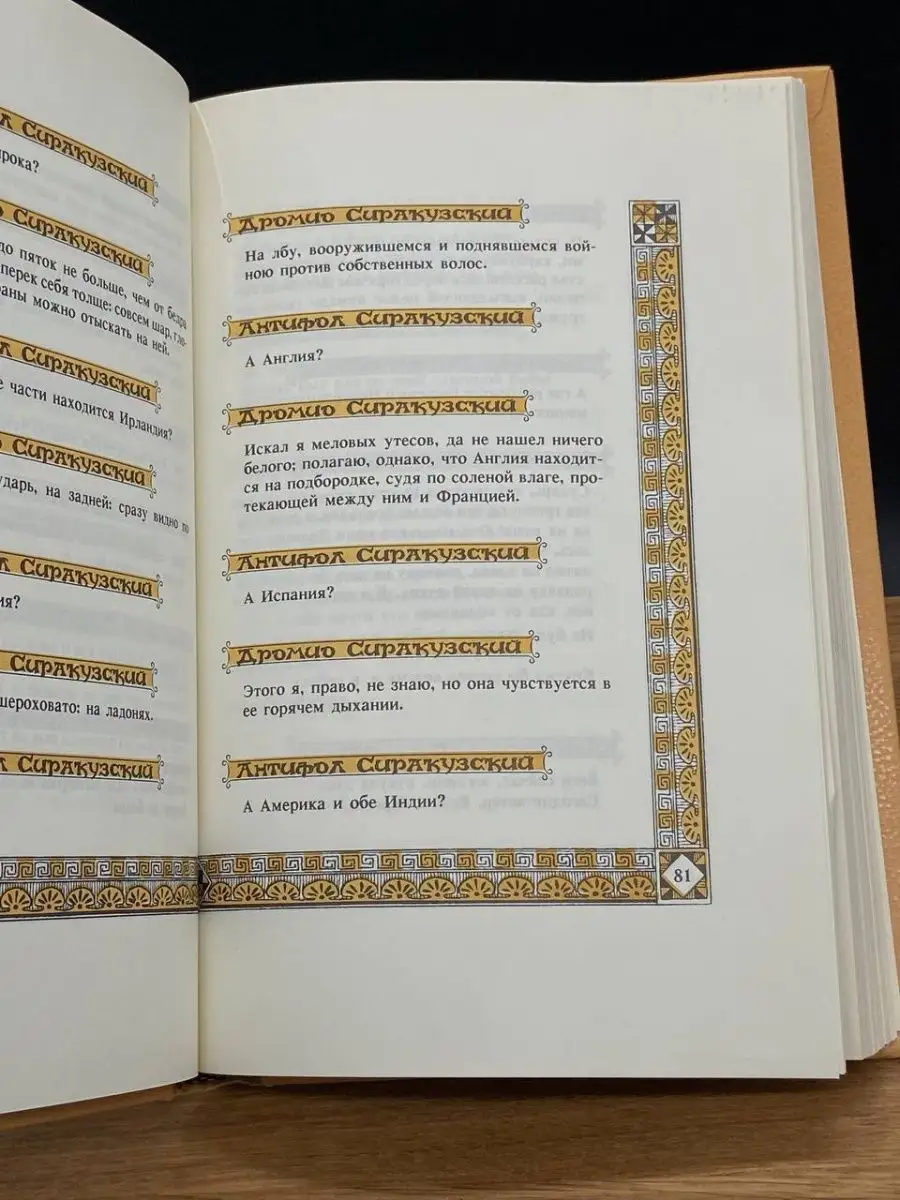 л Сиракузский
ирока?
о Сиракузский
до пяток не больше, чем от бедра
перек себя толще: совсем шар, гло-
раны можно отыскать на ней.
л Сиракузский
е части находится Ирландия?
о Сиракузский
ударь, на задней: сразу видно по
л Сиракузский
ия?
Сиракузский
шероховато: на ладонях.
л Сиракузский
Дромио Сиракузский
На лбу, вооружившемся и поднявшемся вой-
ною против собственных волос.
Антифол Сиракузский
А Англия?
Дромио Сиракузский
Искал я меловых утесов, да не нашел ничего
белого; полагаю, однако, что Англия находит-
ся на подбородке, судя по соленой влаге, про-
текающей между ним и Францией.
Антифол Сиракузский
А Испания?
Дромио Сиракузский
Этого я, право, не знаю, но она чувствуется в
ее горячем дыхании.
Антифол Сиракузский
А Америка и обе Индии?
81